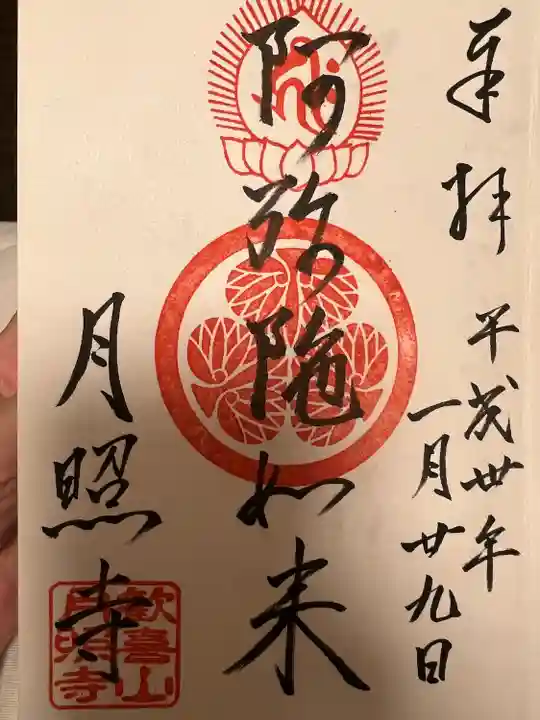 奉拝
平成卅年
一月廿九日
阿弥陁如来
月照寺
歓喜山
月明寺